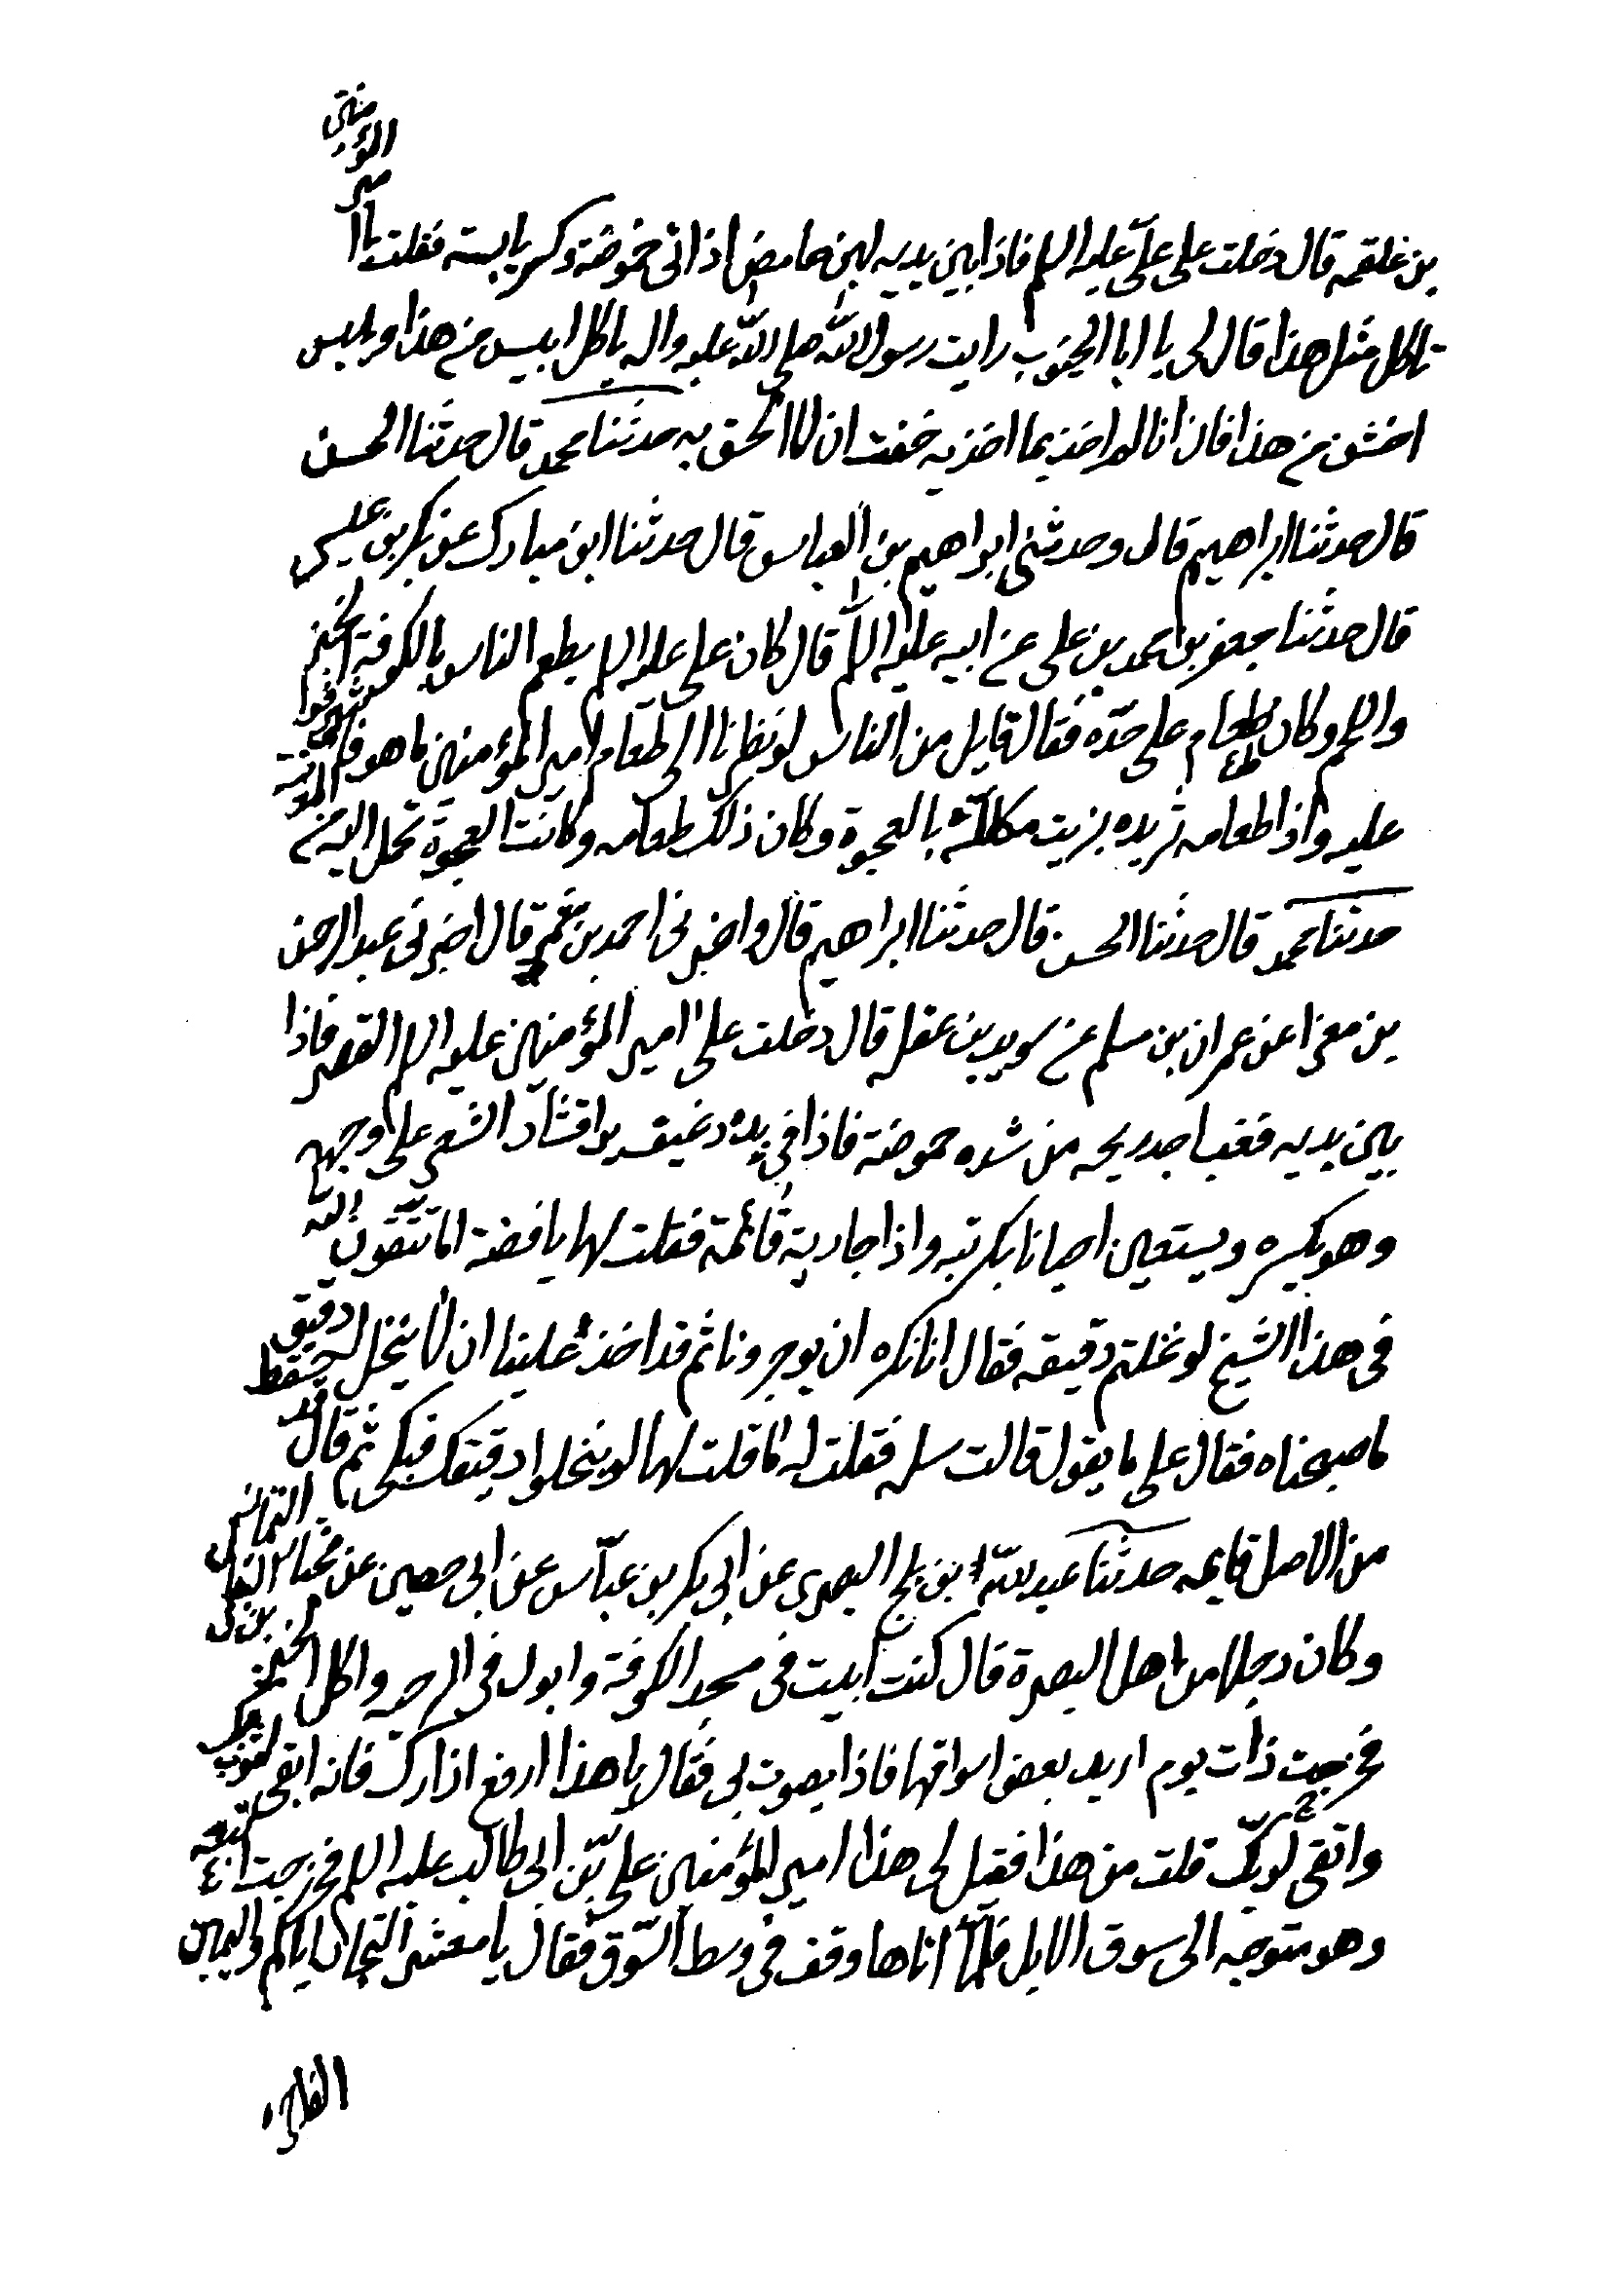 بن علقمه قال دخلت على علىّ عليه السلم فاذا بين يديه لبن حامض اذانى حموضة وكسر يابسته فقلت يا امير المؤمنين
تاكل مثل هذا قال لى يا ابا الجنوب رايت رسول الله صلى الله عليه واله ياكل ايبس من هذا ويلبس
اخشن من هذا فان انا لم اخذ بما اخذ به خفت ان لا الحق به حدثنا محمد قال حدثنا الحسن
قال حدثنا ابراهيم قال وحدثنى ابراهيم بن العباس قال حدثنا ابن مبارك عن بكر بن عيسى
قال حدثنا جعفر بن محمد بن على عن ابيه عليه السلم قال كان على عليه السلم يطعم الناس بالكوفة الخبز
واللحم وكان طعام على حدّه فقال قايل من الناس لو نظرنا الى طعام امير المؤمنين ما هو فاشرفوا
عليه واذا طعامه ثريده بزيت مكللّة بالعجوة وكان ذلك طعامه وكانت العجوة تحمل اليه من المدينة
حدثنا محمد قال حدثنا الحسن قال حدثنا ابراهيم قال واخبرنى احمد بن قال اخبرنى عبد الرحمن
بن مغرا عن عمران بن مسلم عن سويد بن غفله قال دخلت على امير المؤمنين عليه السلم القصر فاذا
بين يديه قعب اجد ريحه من شده حموضة فاذا فى يده رغيف يرا قشار الشعير على وجهه
وهو يكسره ويستعين احيانا بكربته واذا جارية قائمة فقلت لها يا فضة اما تتقون الله
فى هذا الشيخ لو نخلتم دقيقه فقال انا نكره ان يوجر ونا ثم قد اخذ علينا ان لا ينخل له دقيق
ما صحبناه فقال على ما يقول قالت سله فقلت له ما قلت لها لو ينخلوا دقيقك فبكى ثم قال
من الاصل قايمه حدثنا عبد الله بن بلج البصرى عن ابى بكر بن عيّاس عن ابى حصين عن مختار التمار
وكان رجلا من اهل البصرة قال كنت ابيت فى مسجد الكوفة وابول فى الرحبه واكل الخبز
فخرجت ذات يوم اريد بعض اسواقها فاذا بصوت بى فقال يا هذا ارفع ازارك فانه ابقى لثوبك
واتقى لربّك قلت من هذا فقيل لى هذا امير المؤمنين علىّ بن ابى طالب عليه السلم فخرجت اتبعه
وهو متوجه الى سوق الابل فلمّا اتاها وقف فى وسط السّوق فقال يا معشر التجار اياكم واليمين
الفاجره